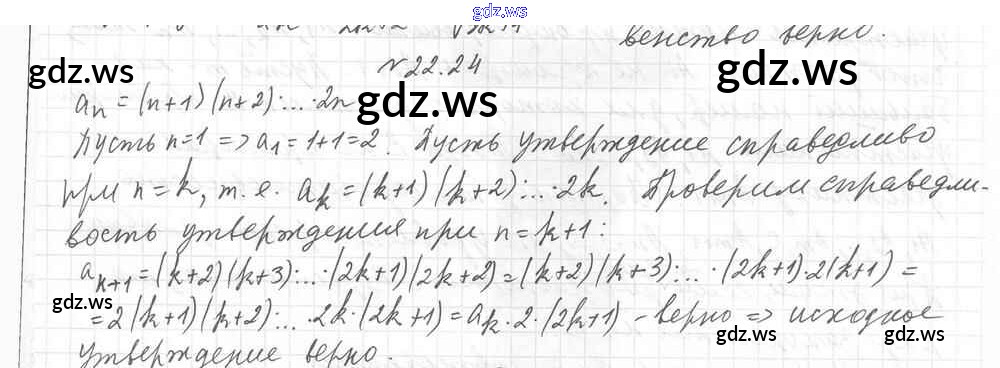 gdz.ws
венство верно.
№22.24
gdz.ws
gdz.ws
aₙ = (n+1)(n+2)·...·2n
gdz.ws
Пусть n=1 => a₁=1+1=2. Пусть утверждение справедливо
при n=k, т.е. aₖ=(k+1)(k+2)·...·2k. Проверим справедли-
вость утверждения при n=k+1:
aₖ₊₁=(k+2)(k+3)·...·(2k+1)(2k+2)=(k+2)(k+3)·...·(2k+1)·2(k+1)=
gdz.ws
=2(k+1)(k+2)·...·2k·(2k+1)=aₖ·2·(2k+1) - верно => исходное
gdz.ws
gdz.ws
утверждение верно.